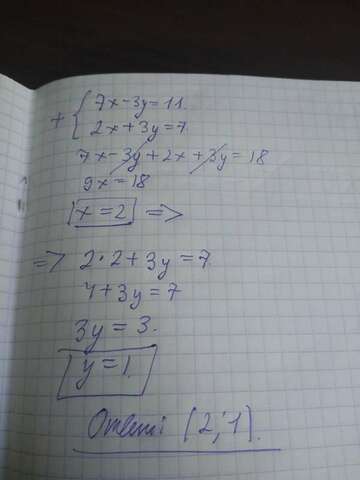 + { 7x-3y=11.
2x+3y=7.
7x-3y+2x+3y=18
9x=18
x=2 =>
=> 2·2+3y=7.
4+3y=7
3y=3.
y=1.
Ответ: (2;1).